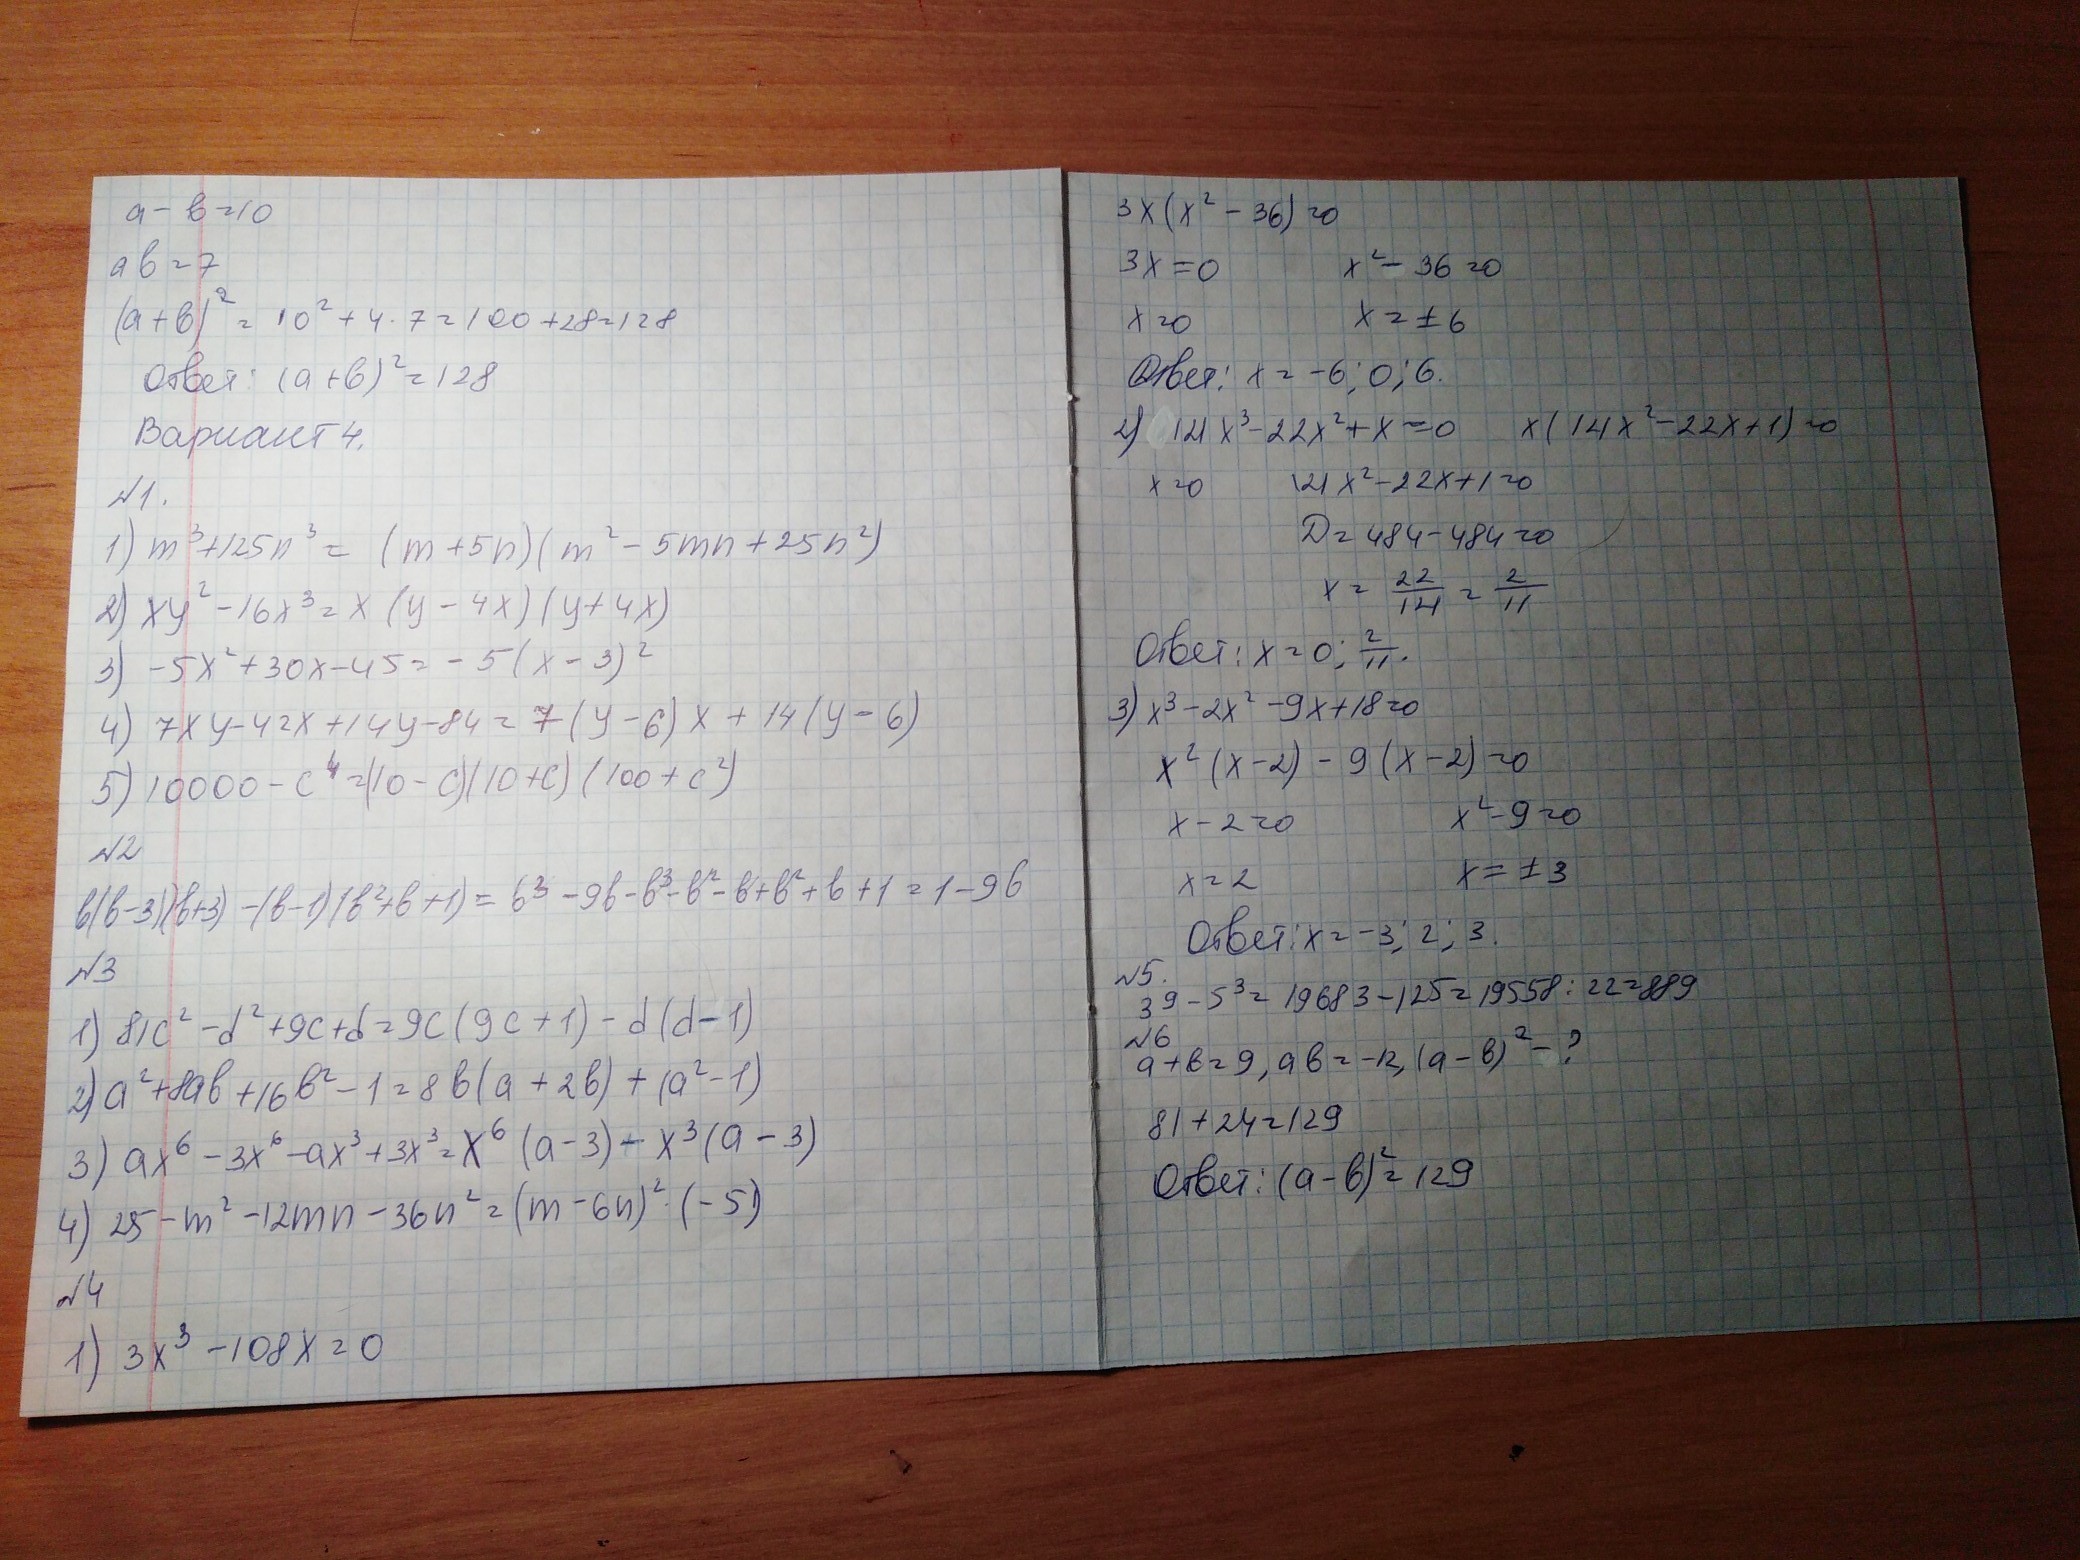 a - b = 10
ab = 7
(a+b)² = 10² + 4·7 = 100 + 28 = 128
Ответ: (a+b)² = 128
Вариант 4.
№1.
1) m³+125n³ = (m+5n)(m² - 5mn + 25n²)
2) xy² - 16x³ = x(y - 4x)(y + 4x)
3) -5x² + 30x - 45 = -5(x - 3)²
4) 7xy - 42x + 14y - 84 = 7(y - 6)x + 14(y - 6)
5) 10000 - c⁴ = (10 - c)(10 + c)(100 + c²)
№2
b(b-3)(b+3) - (b-1)(b²+b+1) = b³ - 9b - b³ - b² - b + b² + b + 1 = 1 - 9b
№3
1) 81c² - d² + 9c + d = 9c(9c + 1) - d(d - 1)
2) a² + 8ab + 16b² - 1 = 8b(a + 2b) + (a² - 1)
3) ax⁶ - 3x⁶ - ax³ + 3x³ = x⁶(a - 3) - x³(a - 3)
4) 25 - m² - 12mn - 36n² = (m - 6n)²·(-5)
№4
1) 3x³ - 108x = 0
3x(x² - 36) = 0
3x = 0 x² - 36 = 0
x = 0 x = ±6
Ответ: x = -6; 0; 6.
2) 121x³ - 22x² + x = 0 x(121x² - 22x + 1) = 0
x = 0 121x² - 22x + 1 = 0
D = 484 - 484 = 0
x = 22/121 = 2/11
Ответ: x = 0; 2/11.
3) x³ - 2x² - 9x + 18 = 0
x²(x - 2) - 9(x - 2) = 0
x - 2 = 0 x² - 9 = 0
x = 2 x = ±3
Ответ: x = -3; 2; 3.
№5.
3⁹ - 5³ = 19683 - 125 = 19558 : 22 = 889
№6
a + b = 9, ab = -12, (a - b)² - ?
81 + 24 = 129
Ответ: (a - b)² = 129